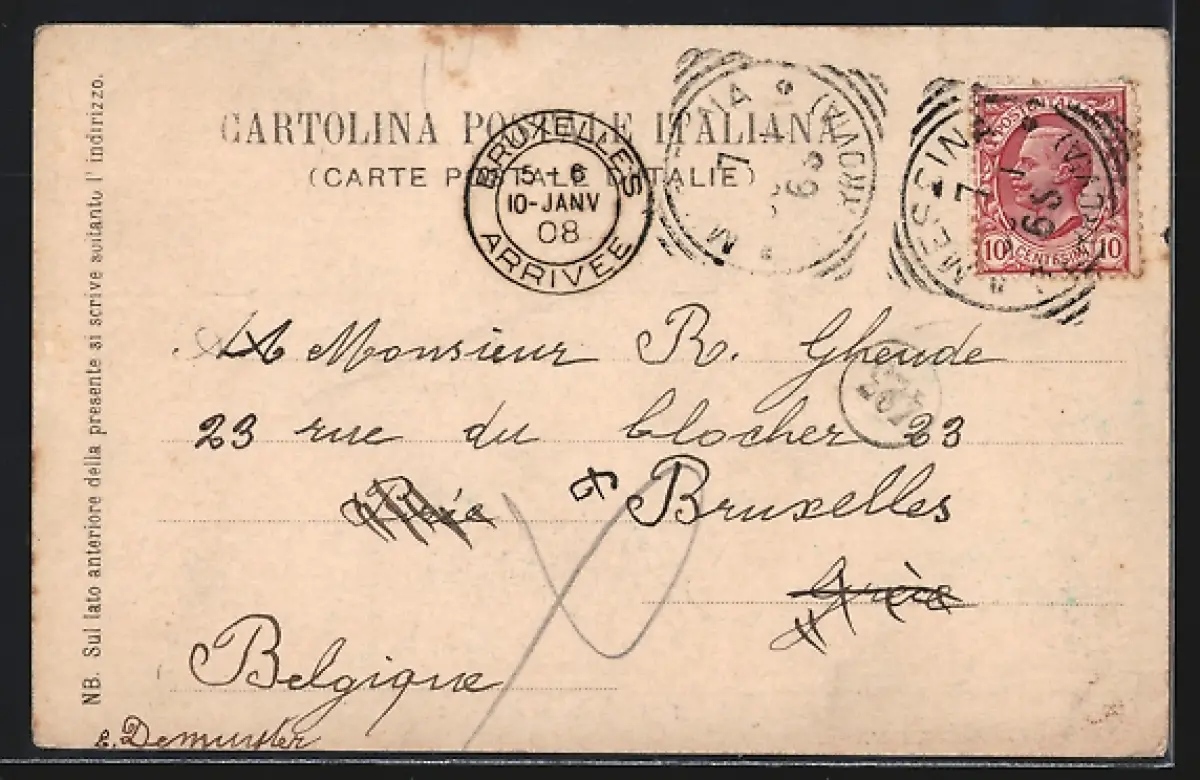 CARTOLINA POSTALE ITALIANA
(CARTE POSTALE D'ITALIE)
BRUXELLES
5-6
10-JANV
08
ARRIVEE
MESSINA
7
MESSINA
7
POSTE ITALIANE
10 CENTESIMI 10
Monsieur R. Gheude
23 rue du Clocher 23
Bruxelles
Belgique
E. Demunter
NB. Sul lato anteriore della presente si scrive soltanto l'indirizzo.